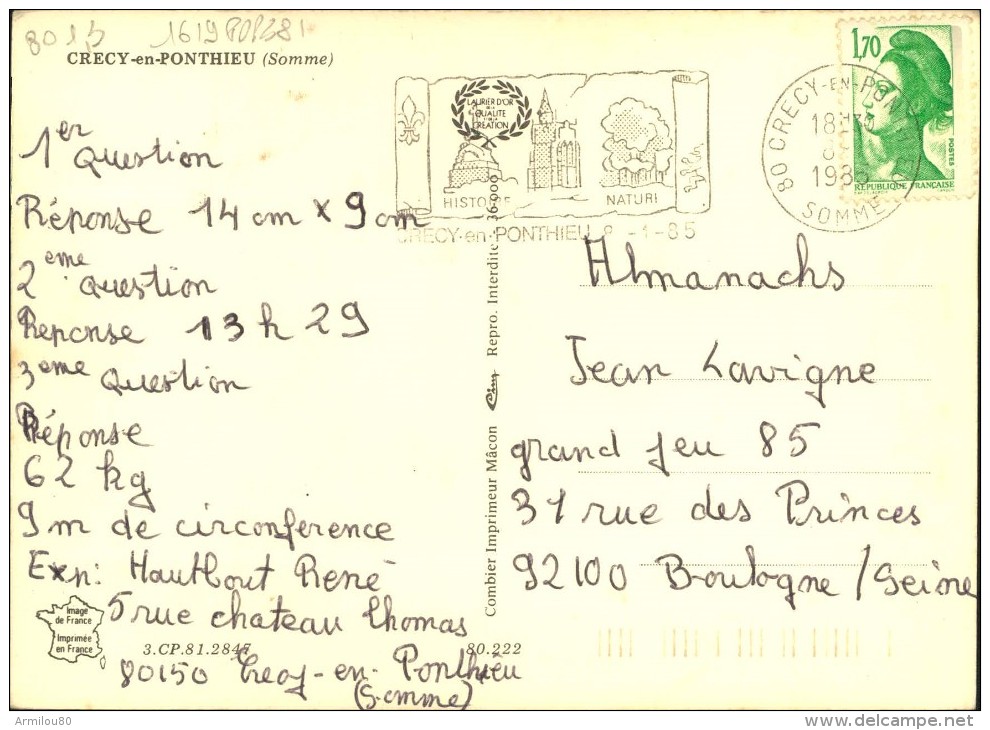 8013
CRECY-en-PONTHIEU (Somme)
1er Question
Réponse 14 cm x 9 cm
2eme question
Reponse 13 h 29
3eme question
Réponse
62 kg
9m de circonference
Exp: Hautbout René
5 rue chateau thomas
80150 Crecy-en-Ponthieu
(Somme)
Image
de France
Imprimée
en France
3.CP.81.2847
80.222
Combier Imprimeur Mâcon
Repro. Interdite
36.000
LAURIER D'OR
DE LA
QUALITE
ET DE LA
CREATION
HISTOIRE
NATURE
CRECY-en-PONTHIEU 8 -1-85
80 CRECY-EN-PONTHIEU
1985
SOMME
1,70
POSTES
REPUBLIQUE FRANÇAISE
Almanachs
Jean Lavigne
grand jeu 85
31 rue des Princes
92100 Boulogne /Seine
Armilou80
www.delcampe.net